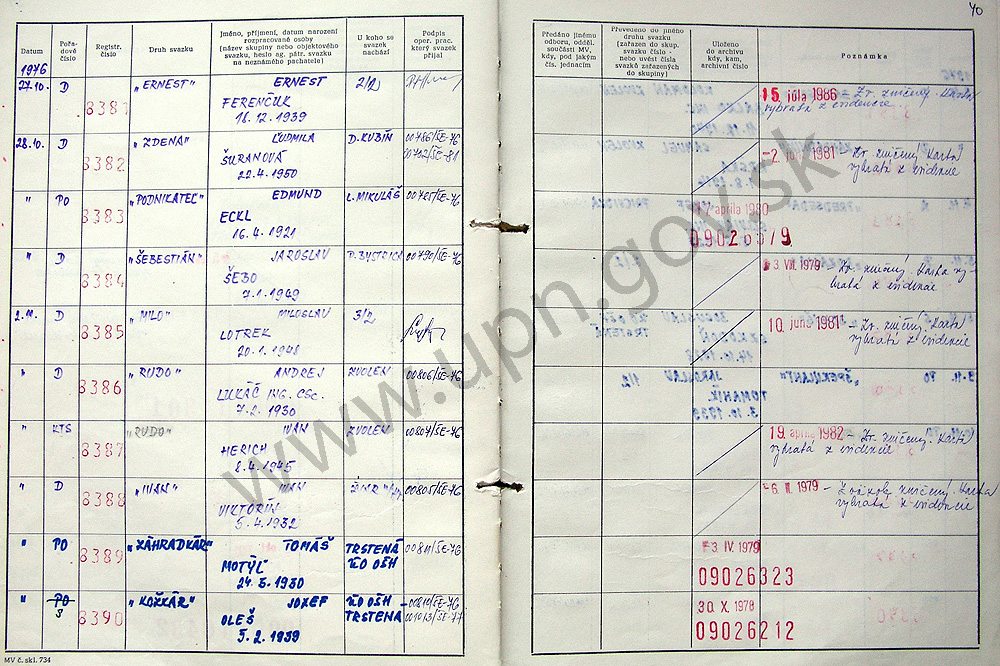 40
Datum
Pořadové číslo
Registr. číslo
Druh svazku
Jméno, příjmení, datum narození rozpracované osoby (název skupiny nebo objektového svazku, heslo ag. pátr. svazku na neznámého pachatele)
U koho se svazek nachází
Podpis oper. prac. který svazek přijal
Předáno jinému odboru, odděl. součásti MV, kdy, pod jakým čís. jednacím
Převedeno do jiného druhu svazku (zařazen do skup. svazku číslo - nebo uvést čísla svazků zařazených do skupiny)
Uloženo do archivu kdy, kam, archivní číslo
Poznámka
1976
27.10. D 8381 "ERNEST" ERNEST 2/2
FERENČUK
18.12.1939
15. júla 1986 - Zv. zničený. Karta
vybratá z evidencie
28.10. D 8382 "ZDENA" ĽUDMILA D. KUBÍN 00786/ŠE-76
ŠURANOVÁ 00702/ŠE-81
22.4.1950
-2. júna 1981 - Zv. zničený. Karta
vybratá z evidencie
" PO 8383 "PODNIKATEĽ" EDMUND L. MIKULÁŠ 00785/ŠE-76
ECKL
16.4.1921
apríla 1980
" D 8384 "ŠEBESTIÁN" JAROSLAV B. BYSTRICA 00790/ŠE-76
ŠEBO
7.1.1949
3. VII. 1979 - Zv. zničený. Karta vy-
bratá z evidencie
2.11. D 8385 "MILO" MILOSLAV 3/2
LOTREK
20.1.1948
10. júna 1981 - Zv. zničený. Karta
vybratá z evidencie
" D 8386 "RUDO" ANDREJ ZVOLEN 00806/ŠE-76
LUKÁČ ING. CSc.
7.2.1930
" KTS 8387 "RUDO" IVAN ZVOLEN 00807/ŠE-76
HERICH
8.4.1945
19. apríla 1982 - Zv. zničený. Karta
vybratá z evidencie
" D 8388 "IVAN" IVAN 00805/ŠE-76
VIKTORÍN
5.4.1932
1979 - zničený. Karta
vybratá z evidencie
" PO 8389 "ZÁHRADKÁR" TOMÁŠ TRSTENÁ 00811/ŠE-76
MOTÝĽ ÚO OŠH
24.5.1930
3. IV. 1979
09026323
" PO 8390 "KOŽKÁR" JOZEF ÚO OŠH 00810/ŠE-76
S OLEŠ TRSTENÁ 001013/ŠE-77
5.2.1939
30. X. 1978
09026212
MV č. skl. 734
www.upn.gov.sk